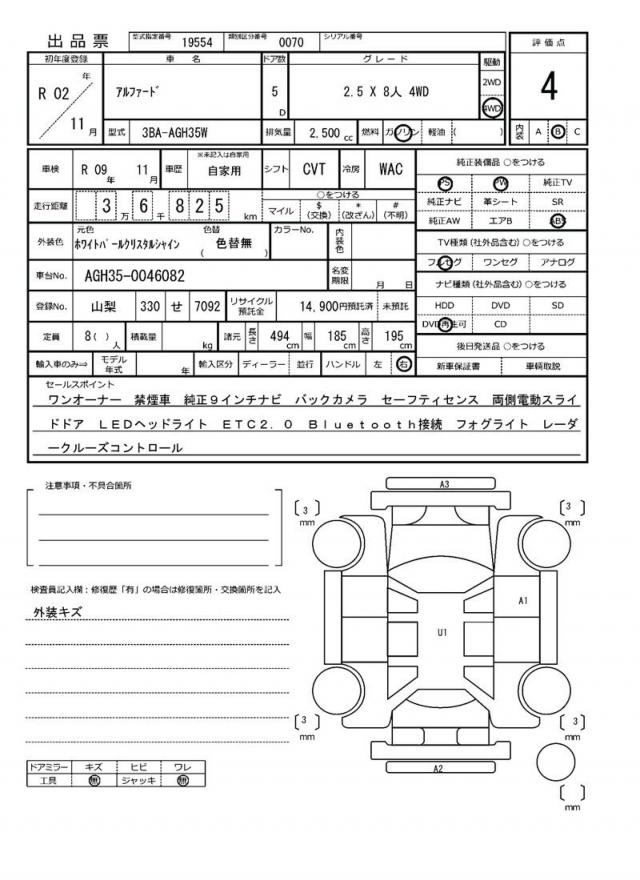 出品票 型式指定番号 19554 類別区分番号 0070 シリアル番号
初年度登録 車名 ドア数 グレード 駆動 評価点
R 02 年 11 月 アルファード 5 D 2.5 X 8人 4WD 2WD 4WD 4
型式 3BA-AGH35W 排気量 2,500 cc 燃料 ガソリン 軽油 ( ) 内装 A B C
車検 R 09 年 11 月 車歴 ※未記入は自家用 自家用 シフト CVT 冷房 WAC
純正装備品 ○をつける
PS PW 純正TV
純正ナビ 革シート SR
純正AW エアB ABS
走行距離 3 万 6 千 8 2 5 km ○をつける
マイル $(交換) *(改ざん) #(不明)
外装色 元色 ホワイトパールクリスタルシャイン 色替 ( 色替無 ) カラーNo. 内装色
TV種類 (社外品含む) ○をつける
フルセグ ワンセグ アナログ
車台No. AGH35-0046082 名変期限 月 日
ナビ種類 (社外品含む) ○をつける
登録No. 山梨 330 せ 7092 リサイクル預託金 14,900円預託済 未預託
HDD DVD SD
DVD再生可 CD
定員 8( ) 人 積載量 kg 諸元 長さ 494 cm 幅 185 cm 高さ 195 cm
後日発送品 ○をつける
新車保証書 車輌取説
輸入車のみ⇒ モデル年式 年 輸入区分 ディーラー 並行 ハンドル 左 右
セールスポイント
ワンオーナー 禁煙車 純正9インチナビ バックカメラ セーフティセンス 両側電動スライ
ドドア LEDヘッドライト ETC2.0 Bluetooth接続 フォグライト レーダ
ークルーズコントロール
注意事項・不具合箇所
検査員記入欄:修復歴「有」の場合は修復箇所・交換箇所を記入
外装キズ
A3
[ 3 ] mm
[ 3 ] mm
A1
U1
[ 3 ] mm
[ 3 ] mm
A2
[ ] mm
ドアミラー キズ ヒビ ワレ
工具 無 ジャッキ 無